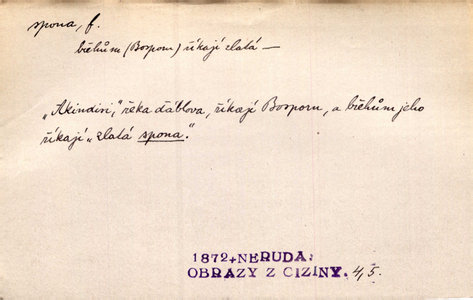 spona, f.
břehům (Bosporu) říkají zlatá —
„Akindiri," řeka ďáblova, říkají Bosporu, a břehům jeho
říkají „zlatá spona".
1872, NERUDA,
OBRAZY Z CIZINY. 4,5.